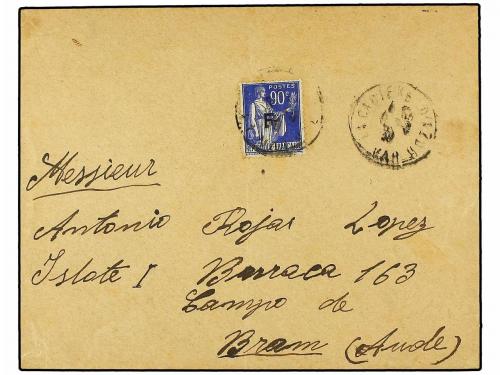 POSTES
90c
F
LA CADIERE D'AZUR
VAR
Messieur
Antonio Rojas Lopez
Islote I Barraca 163
Campo de
Bram (Aude)